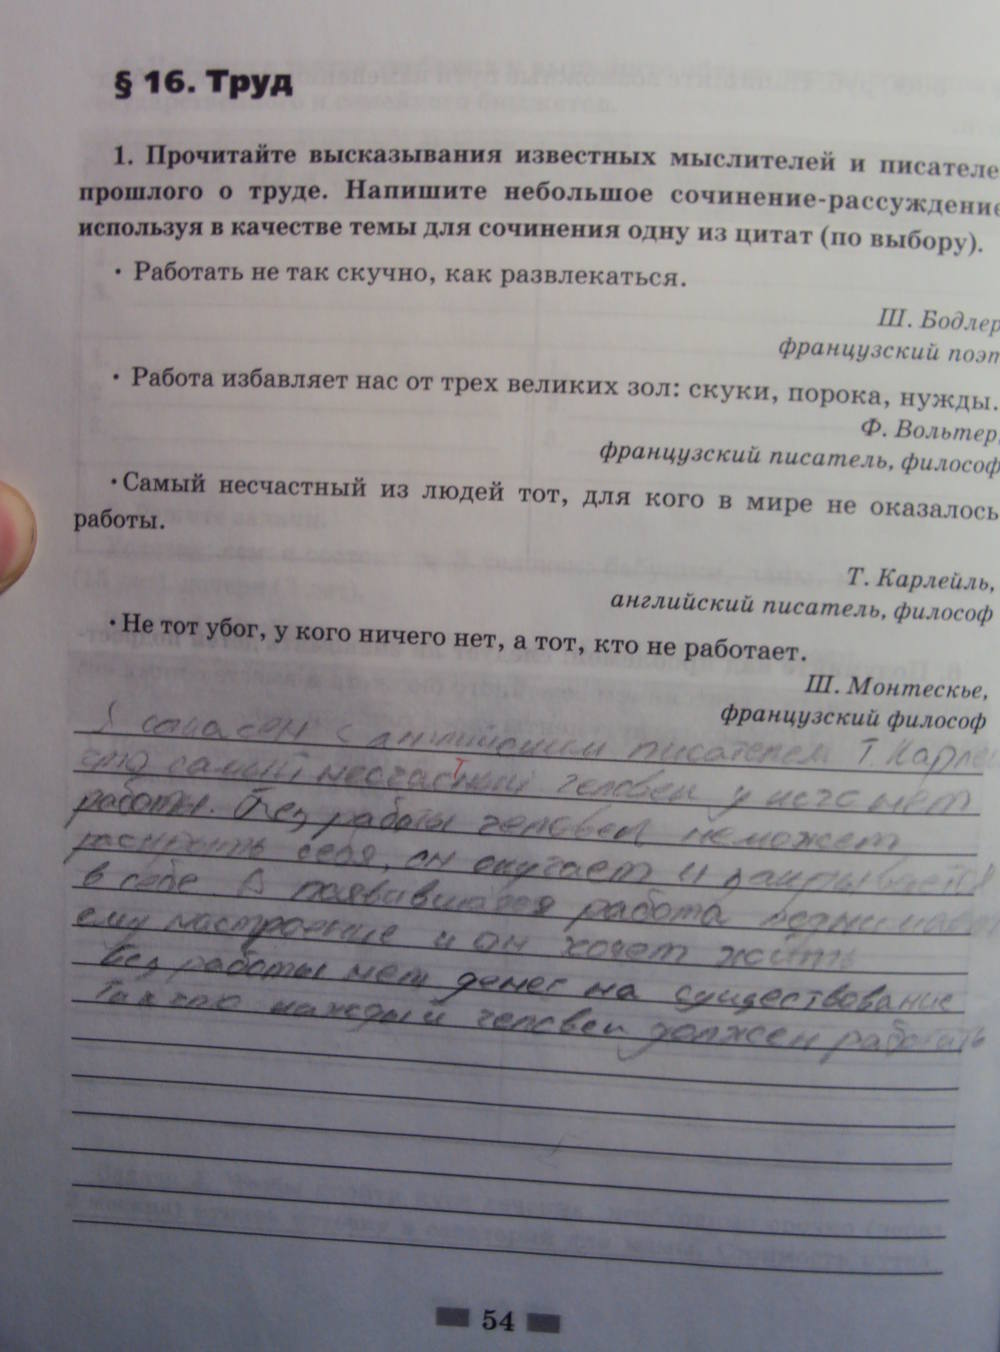 § 16. Труд
1. Прочитайте высказывания известных мыслителей и писателе
прошлого о труде. Напишите небольшое сочинение-рассуждение
используя в качестве темы для сочинения одну из цитат (по выбору).
· Работать не так скучно, как развлекаться.
Ш. Бодлер
французский поэт
· Работа избавляет нас от трех великих зол: скуки, порока, нужды.
Ф. Вольтер,
французский писатель, философ
· Самый несчастный из людей тот, для кого в мире не оказалось
работы.
Т. Карлейль,
английский писатель, философ
· Не тот убог, у кого ничего нет, а тот, кто не работает.
Ш. Монтескье,
французский философ
Я согласен с английским писателем Т. Карлей
самый несчастный человек у нет
работы. Без работы человек неможет
себя, он скучает и закрывается
в себе. А появившаяся работа поднимает
ему настроение и он хочет жить
Без работы нет денег на существование
Так как каждый человек должен работать
54